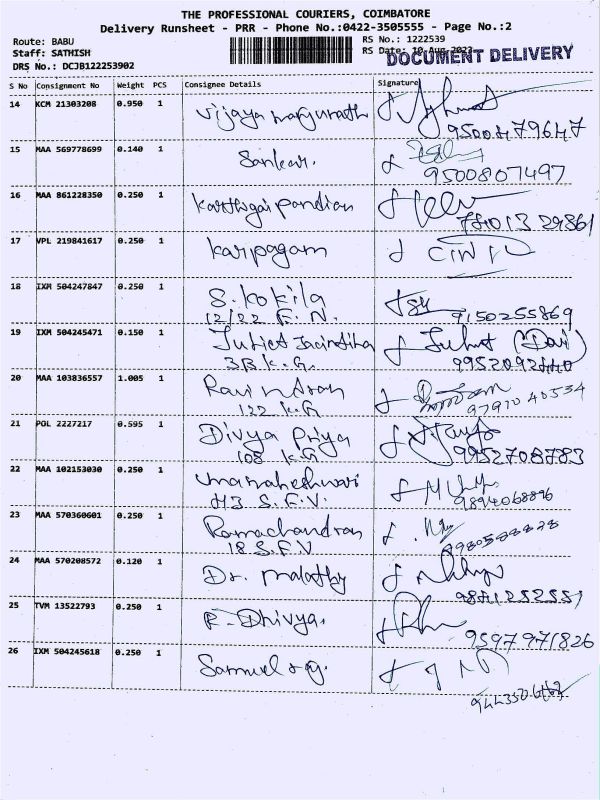 THE PROFESSIONAL COURIERS, COIMBATORE
Delivery Runsheet - PRR - Phone No.:0422-3505555 - Page No.:2
Route: BABU
Staff: SATHISH
DRS No.: DCJB122253902
RS No.: 1222539
RS Date: 10-Aug-2023
DOCUMENT DELIVERY
S No Consignment No Weight PCS Consignee Details Signature
14 KCM 21303208 0.950 1 Vijaya
9500479647
15 MAA 569778699 0.140 1 Sankar.
9500807497
16 MAA 861228350 0.250 1 Karthigai pandian
17 VPL 219841617 0.250 1 Karpagam
18 IXM 504247847 0.250 1 S. Kokila
12/22 F. N. 9150255869
19 IXM 504245471 0.150 1 Juliet Jacintha
3B K.G.
20 MAA 103836557 1.005 1 Ravindran
122 K.G
21 POL 2227217 0.595 1 Divya Priya
108 K.G 9952708783
22 MAA 102153030 0.250 1 Umamaheshwari
H3 S.F.V. 9894068896
23 MAA 570360601 0.250 1 Ramachandran
18 S.F.V
24 MAA 570208572 0.120 1 Dr. Malathy
25 TVM 13522793 0.250 1 R. Dhivya.
9597971826
26 IXM 504245618 0.250 1 Samuel